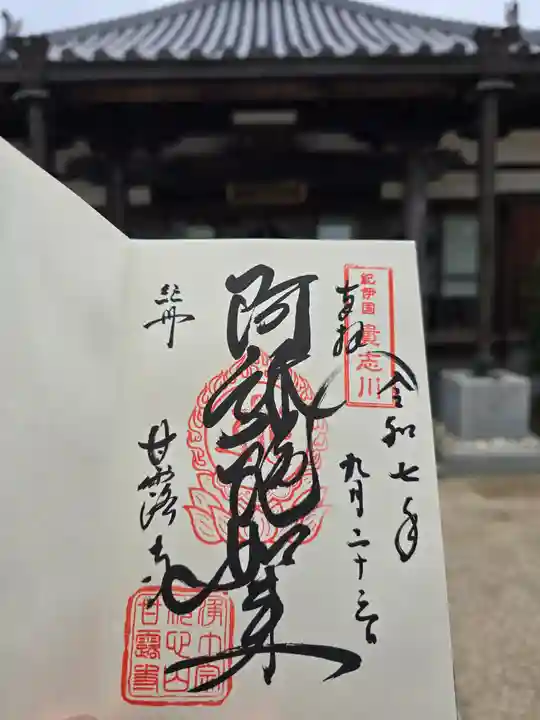 奉拝
紀伊国 貴志川
令和七年
九月二十三日
阿弥陀如来
紀州
甘露寺
浄土宗
甘露寺